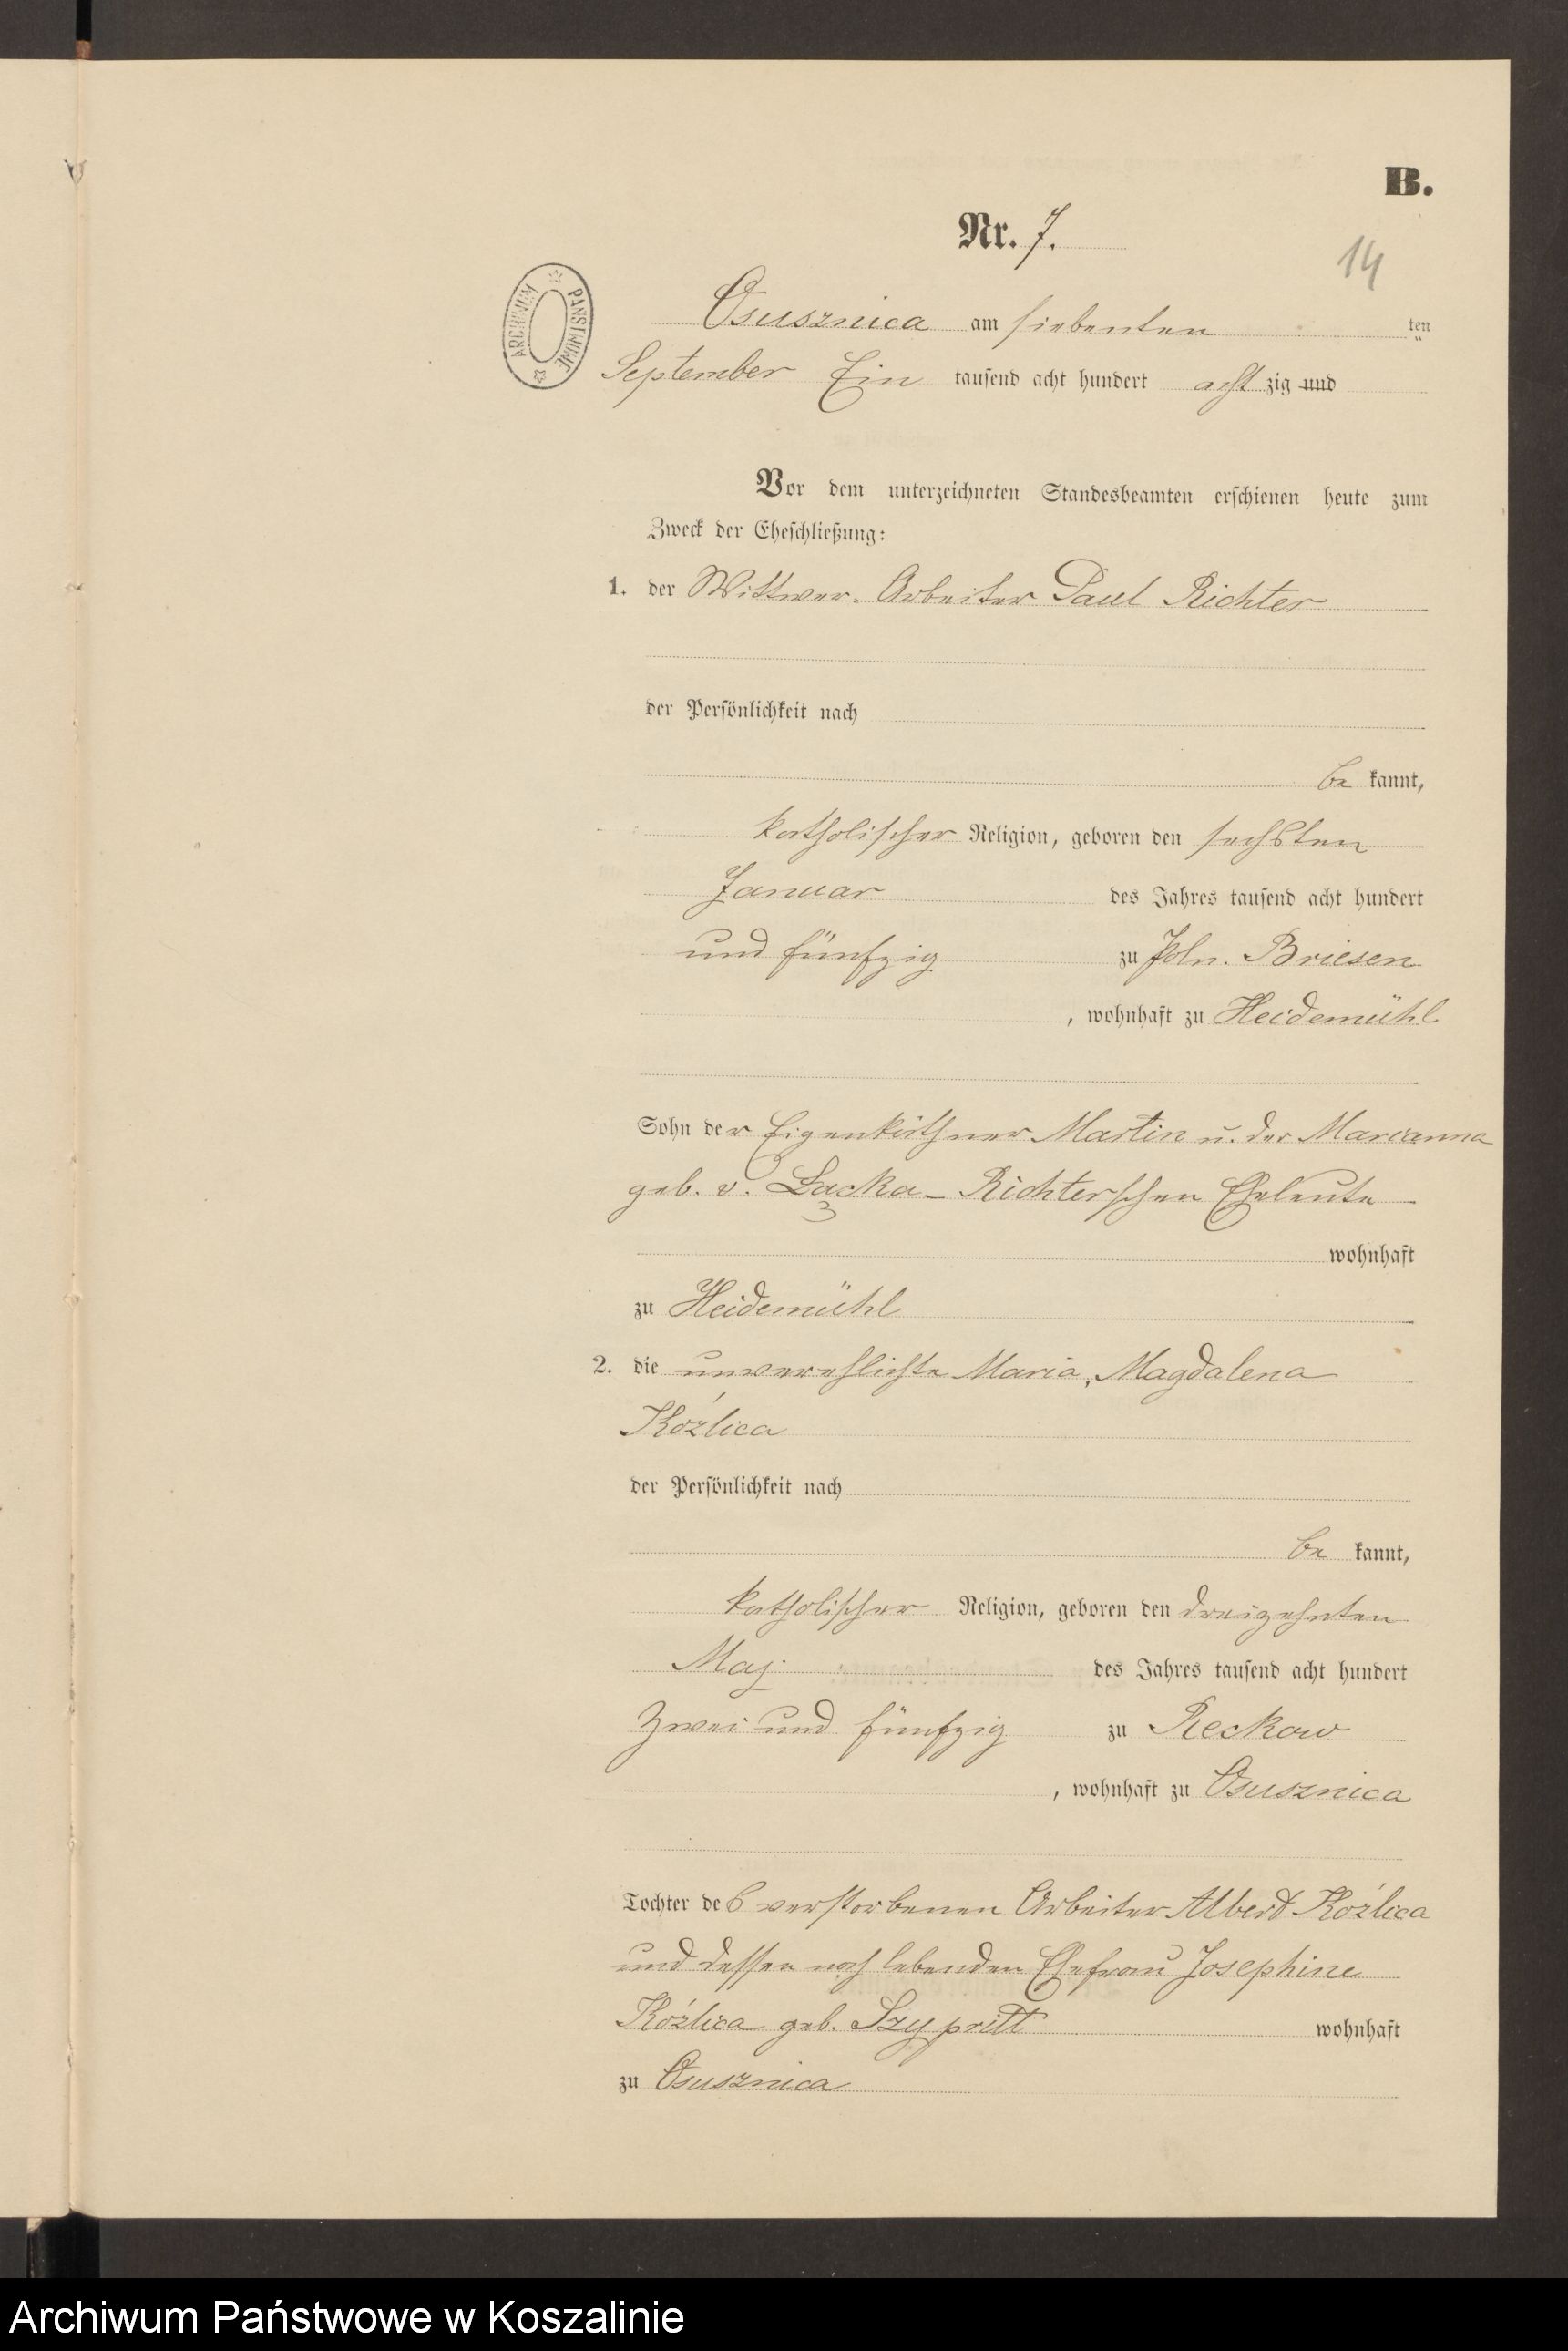 B.
Nr. 7.
14
ARCHIWUM PAŃSTWOWE
Osusznica am siebenten ten
September Ein tausend acht hundert acht zig und
Vor dem unterzeichneten Standesbeamten erschienen heute zum
Zweck der Eheschließung:
1. der Wittwer Arbeiter Paul Richter
der Persönlichkeit nach
be kannt,
katholischer Religion, geboren den sechsten
Januar des Jahres tausend acht hundert
und fünfzig zu Poln. Briesen
, wohnhaft zu Heidemühl
Sohn der Eigenkäthner Martin u. der Marianna
geb. v. Lacka - Richterschen Eheleute
wohnhaft
zu Heidemühl
2. die unverehlichte Maria, Magdalena
Kóźlica
der Persönlichkeit nach
be kannt,
katholischer Religion, geboren den dreizehnten
Maj des Jahres tausend acht hundert
zwei und fünfzig zu Reckow
, wohnhaft zu Osusznica
Tochter des verstorbenen Arbeiter Albert Kóźlica
und dessen noch lebenden Ehefrau Josephine
Kóźlica geb. Szypritt wohnhaft
zu Osusznica
Archiwum Państwowe w Koszalinie